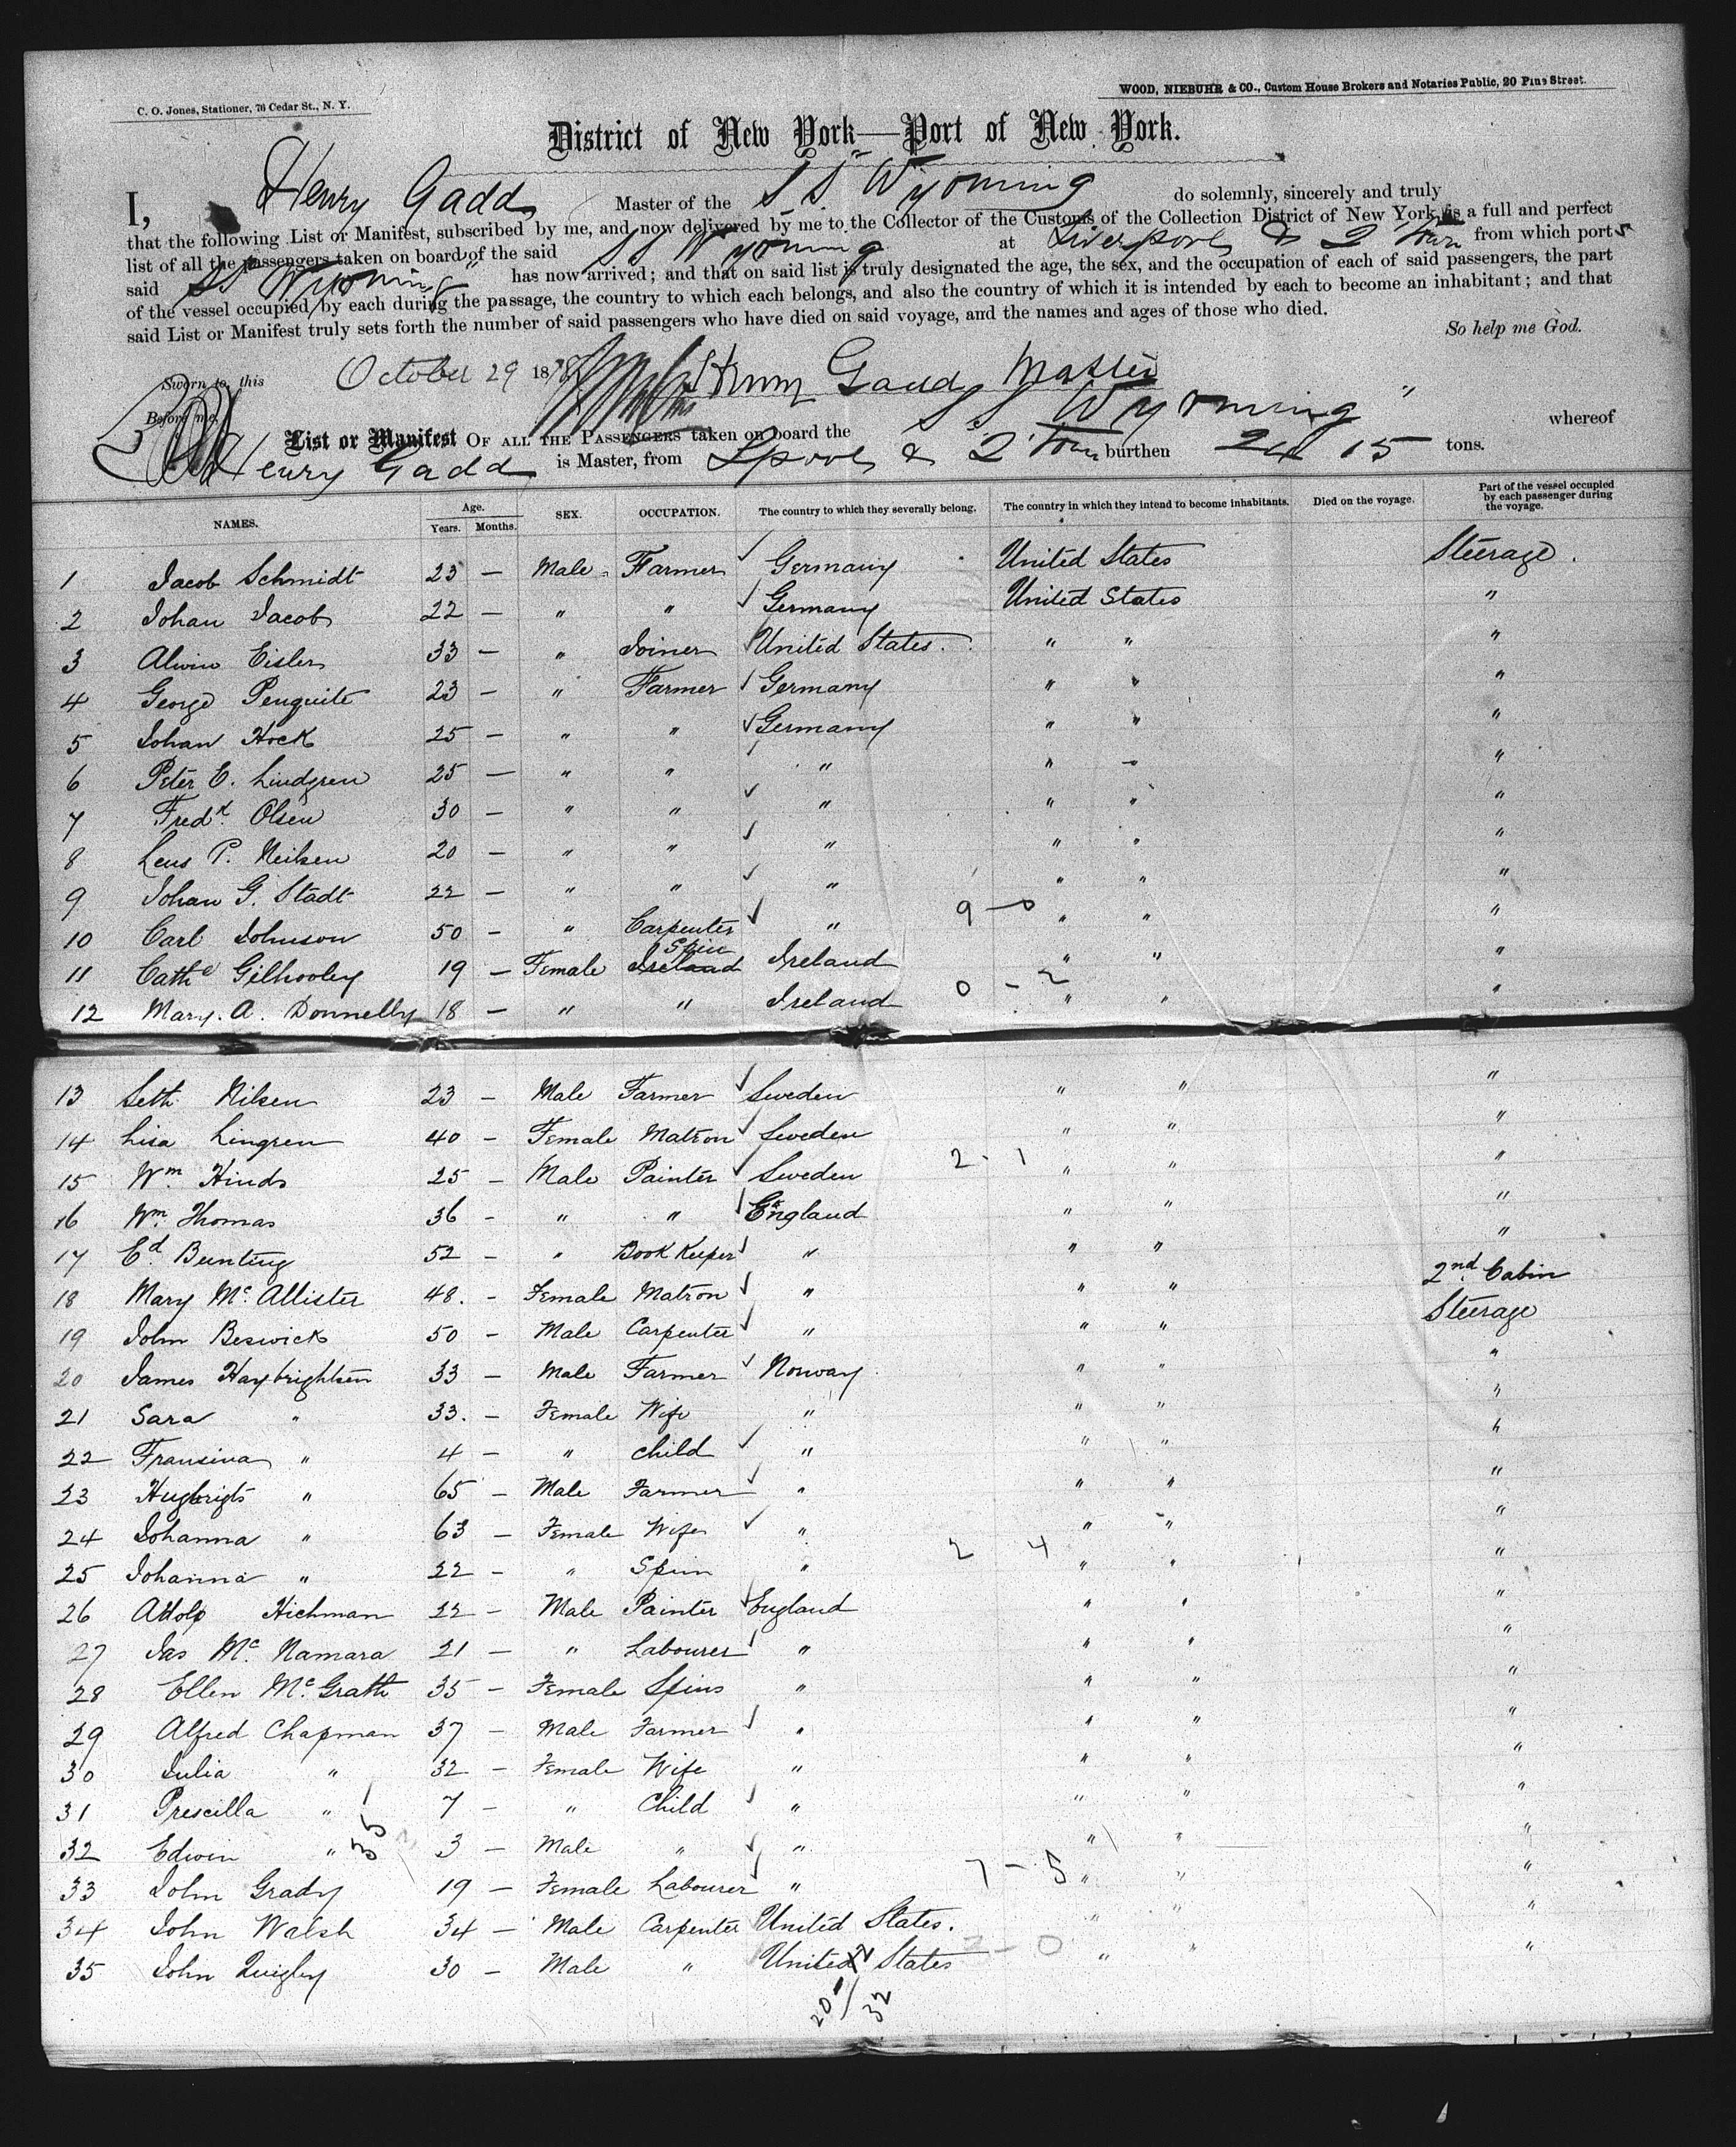 C. O. Jones, Stationer, 76 Cedar St., N. Y.
WOOD, NIEBUHR & CO., Custom House Brokers and Notaries Public, 20 Pine Street.
District of New York—Port of New York.
I, Henry Gadd Master of the S S "Wyoming do solemnly, sincerely and truly
that the following List or Manifest, subscribed by me, and now delivered by me to the Collector of the Customs of the Collection District of New York, is a full and perfect
list of all the passengers taken on board of the said S S Wyoming at Liverpool & 2 Town from which port
said SS Wyoming" has now arrived; and that on said list is truly designated the age, the sex, and the occupation of each of said passengers, the part
of the vessel occupied by each during the passage, the country to which each belongs, and also the country of which it is intended by each to become an inhabitant; and that
said List or Manifest truly sets forth the number of said passengers who have died on said voyage, and the names and ages of those who died.
So help me God.
Sworn to, this October 29 1878 Henry Gadd, Master
Before me,
List or Manifest OF ALL THE PASSENGERS taken on board the S S Wyoming " whereof
Henry Gadd is Master, from Lpool & 2 Town burthen 2415 tons.
NAMES. Age. Years. Months. SEX. OCCUPATION. The country to which they severally belong. The country in which they intend to become inhabitants. Died on the voyage. Part of the vessel occupied by each passenger during the voyage.
1 Jacob Schmidt 23 — Male Farmer Germany United States Steerage.
2 Johan Jacob 22 — " " Germany United States "
3 Alwin Eisler 33 — " Joiner United States. " " "
4 George Penquite 23 — " Farmer Germany " " "
5 Johan Hock 25 — " " Germany " " "
6 Peter E. Lindgren 25 — " " " " " "
7 Fredk. Olsen 30 — " " " " " "
8 Lens P. Neilsen 20 — " " " " " "
9 Johan G. Stadt 22 — " " " " " "
9 — 0
10 Carl Johnson 50 — " Carpenter " " " "
11 Cathe Gilhooley 19 — Female Ireland Spin Ireland " " "
0 - 2
12 Mary. A. Donnelly 18 — " " Ireland " " "
13 Seth Nilsen 23 — Male Farmer Sweden " " "
14 Lisa Lingren 40 - Female Matron Sweden " " "
2 - 1
15 Wm. Hinds 25 — Male Painter Sweden " " "
16 Wm. Thomas 36 - " " England " " "
17 Ed. Bunting 52 - " Book Keeper " " " "
18 Mary Mc. Allister 48. - Female Matron " " " 2nd. Cabin
19 John Beswick 50 - Male Carpenter " " " Steerage
20 James Haybrightsen 33 — Male Farmer Norway " " "
21 Sara " 33. — Female Wife " " " "
22 Fransina " 4 — " child " " " "
23 Hugbrigts " 65 — Male Farmer " " " "
24 Johanna " 63 — Female Wife " " " "
2 4
25 Johanna " 22 - " Spin " " " "
26 Adolp Hichman 22 — Male Painter England " " "
27 Jas Mc. Namara 21 — " Labourer " " " "
28 Ellen Mc. Grath 35 - Female Spins " " " "
29 Alfred Chapman 37 — Male Farmer " " " "
30 Julia " 32 - Female Wife " " " "
31 Prescilla " 7 - " Child " " " "
32 Edwin " 35 3 — Male " " " " "
7 - 5
33 John Grady 19 — Female Labourer " " " "
34 John Walsh 34 — Male Carpenter United States. " " "
2 - 0
35 John Quigley 30 — Male " United States " " "
20 / 32